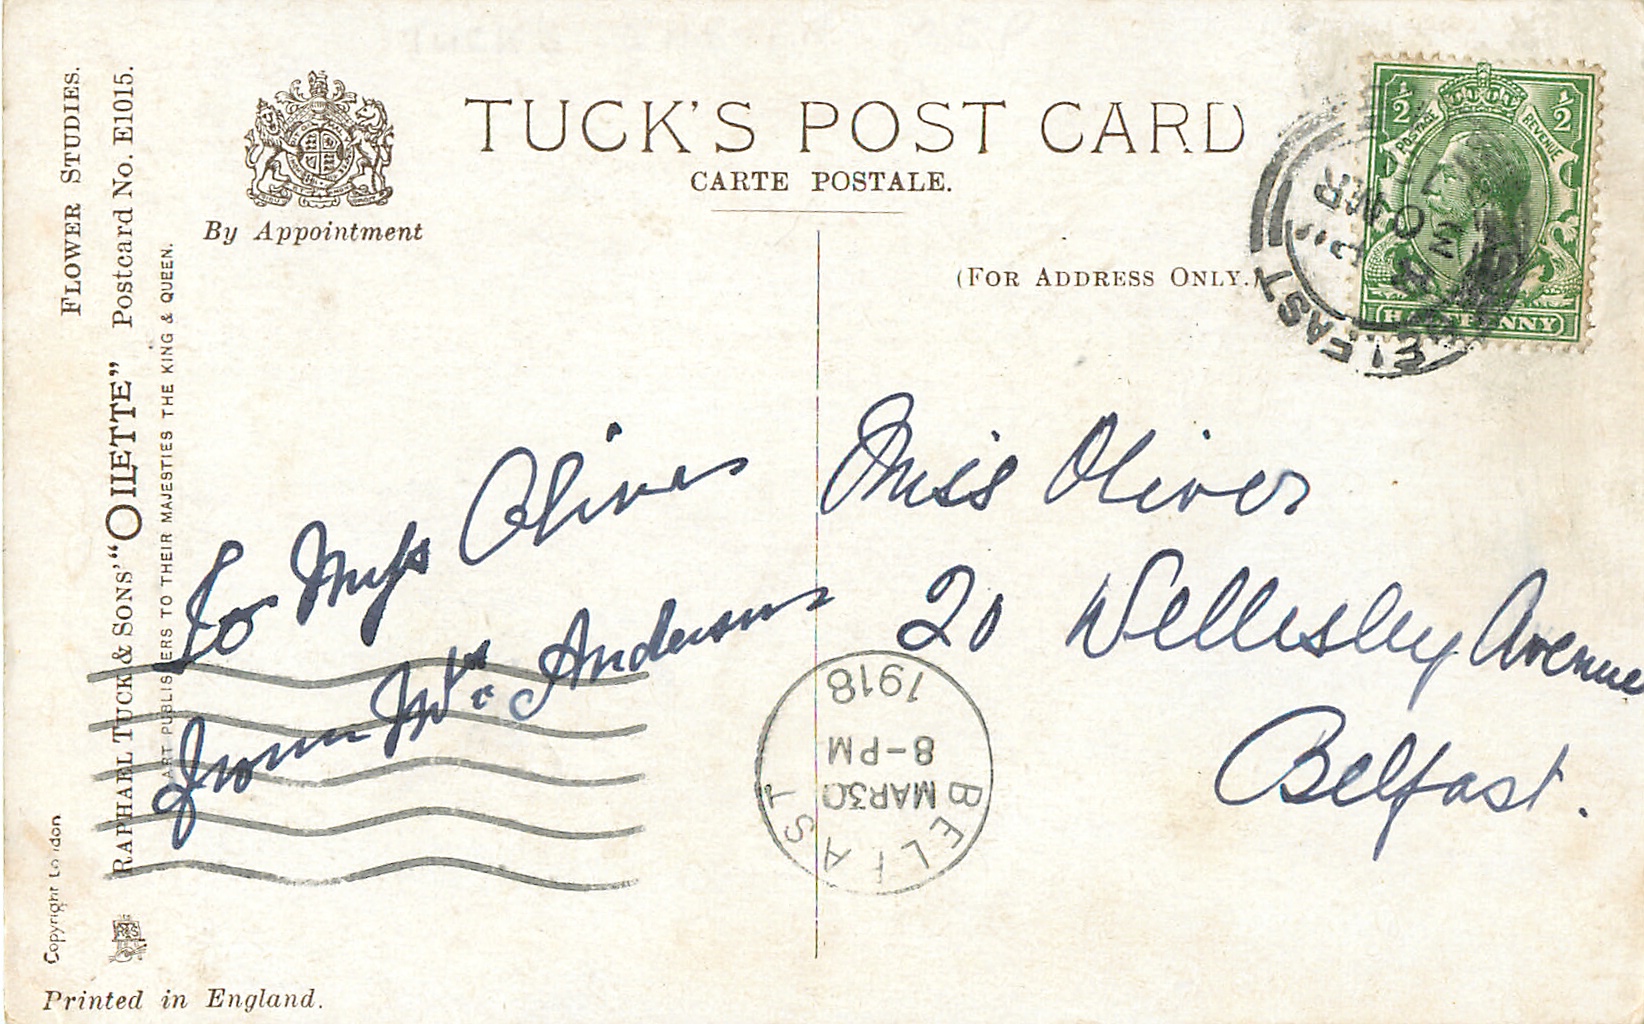 TUCK'S POST CARD
CARTE POSTALE.
By Appointment
(FOR ADDRESS ONLY.)
FLOWER STUDIES.
Postcard No. E1015.
RAPHAEL TUCK & SONS' "OILETTE"
ART PUBLISHERS TO THEIR MAJESTIES THE KING & QUEEN.
Copyright London
Printed in England.
½ ½
POSTAGE REVENUE
HALFPENNY
To Miss Oliver
from Mrs Anderson
Miss Oliver
20 Wellesley Avenue
Belfast.
BELFAST
MAR 30
8-PM
1918